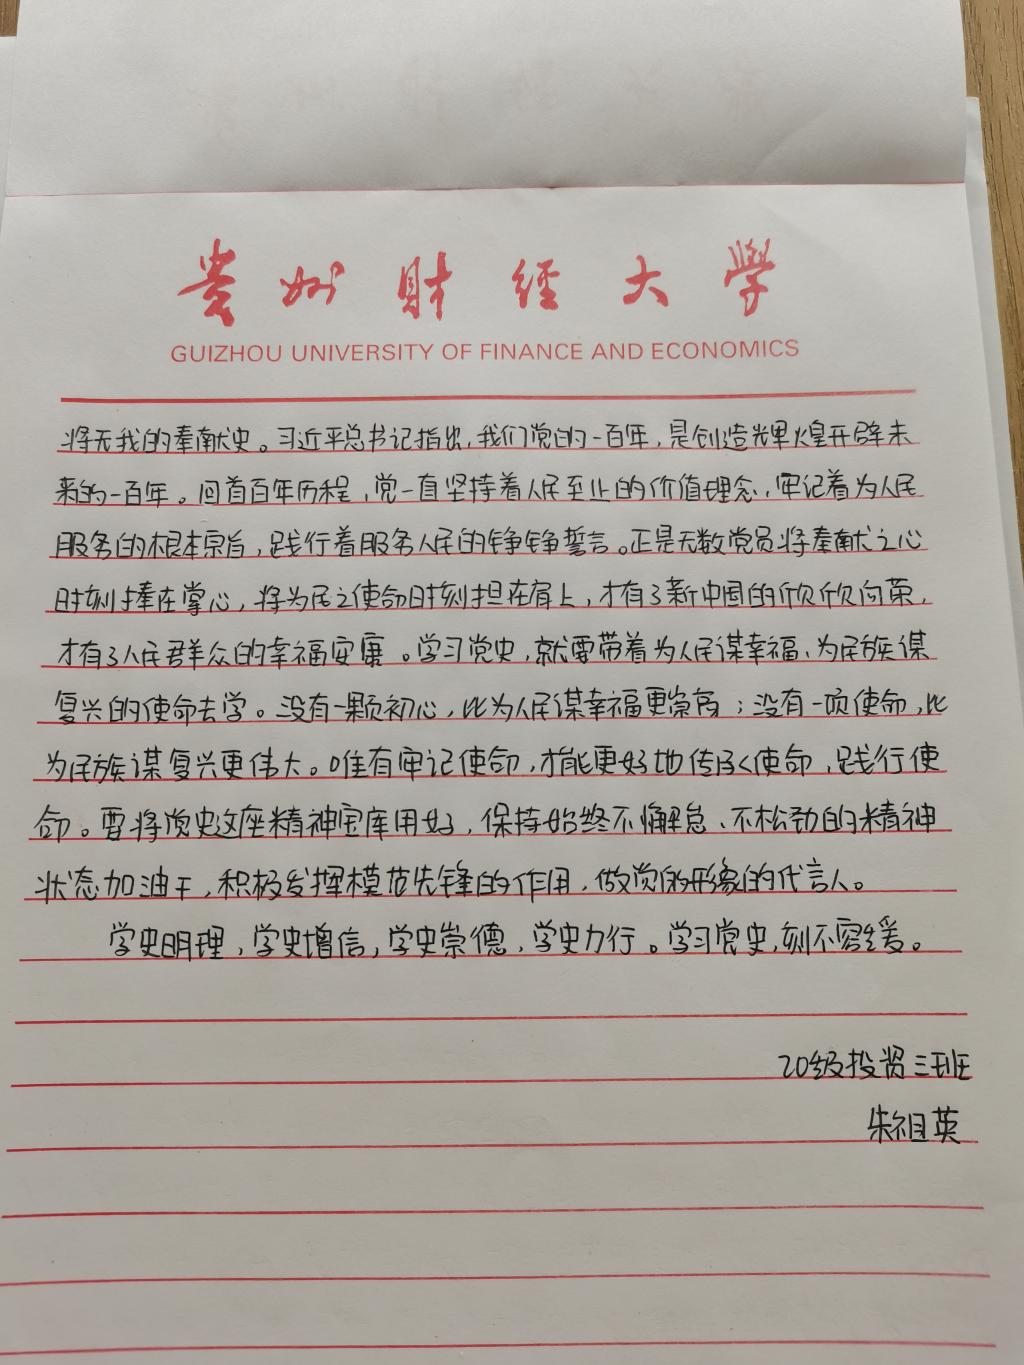 贵州财经大学
GUIZHOU UNIVERSITY OF FINANCE AND ECONOMICS
将无我的奉献史。习近平总书记指出,我们党的一百年,是创造辉煌开辟未
来的一百年。回首百年历程,党一直坚持着人民至上的价值理念,牢记着为人民
服务的根本宗旨,践行着服务人民的铮铮誓言。正是无数党员将奉献之心
时刻捧在掌心,将为民之使命时刻担在肩上,才有了新中国的欣欣向荣,
才有了人民群众的幸福安康。学习党史,就要带着为人民谋幸福、为民族谋
复兴的使命去学。没有一颗初心,比为人民谋幸福更崇高;没有一项使命,比
为民族谋复兴更伟大。唯有牢记使命,才能更好地传承使命,践行使
命。要将党史这座精神宝库用好,保持始终不懈怠、不松劲的精神
状态加油干,积极发挥模范先锋的作用,做党的形象的代言人。
学史明理,学史增信,学史崇德,学史力行。学习党史,刻不容缓。
20级投资三班
朱祖英